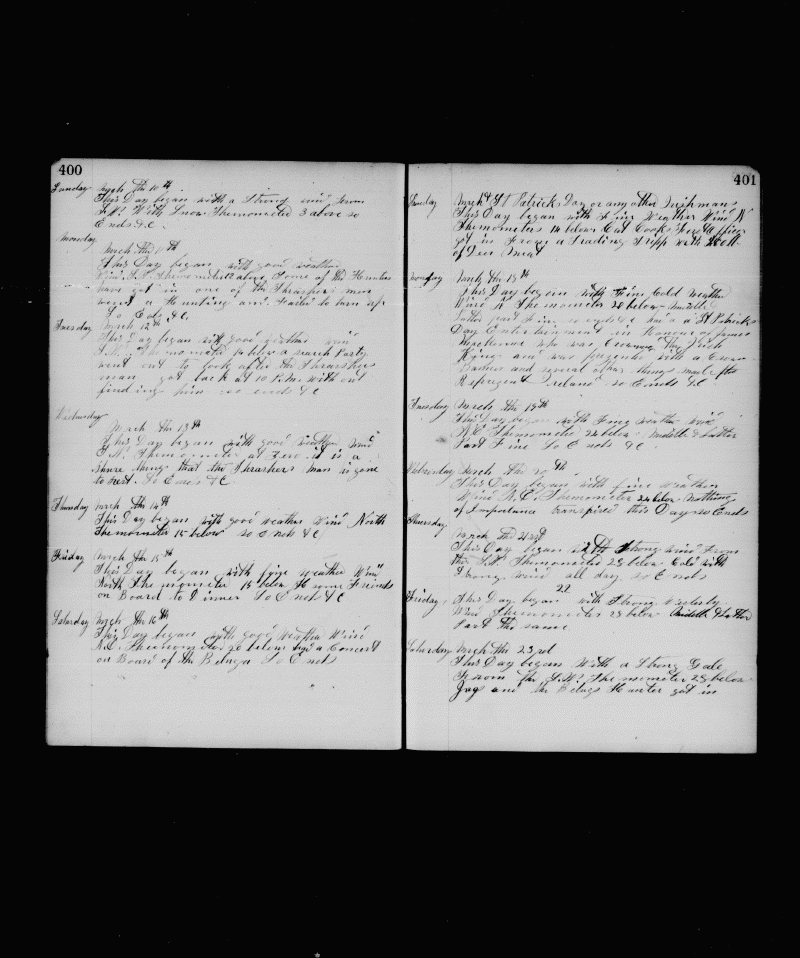 400
Sunday March the 10th
This Day began with a Strong wind from
S.W. With Snow Thermometed 3 above so
Ends &c.
Monday
March the 11th
This Day began with good weather
Wind S.W. Thermometer 12 above Some of the Hunters
have got in one of the Thrashers men
went a Hunting and Failed to turn up
So Ends &c.
Tuesday March 12th
This Day began with good weather wind
S.W. Thermometer 14 below a search Party
went out to look after the Thrashers
man got back at 10 P.m. with out
finding him so ends &c
Wednesday
March the 13th
This Day began with good weather Wind
S.W. Thermometer at Zero it is a
shure thing that the Thrashers man is gone
to rest. So Ends &c
Thursday March the 14th
This Day began with good weather Wind North
Thermometer 15 below so Ends &c
Friday March the 15th
This Day began with fine weather Wind
North Thermometer 18 below some Friends
on Board to Dinner So Ends &c
Saturday March the 16th
This Day began with good weather Wind
N.E. Thermometer 20 below a Concert
on Board of the Beluga So Ends
401
Sunday March St Patricks Day or any other Irishmans
This Day began with Fine Weather Wind N
Thermometer 14 below Capt Cooks Officer
got in From a Trading Tripp with
of Deer Meat
Monday March the 18th
This Day began with Fine Cold weather
Wind N Thermometer 28 below Middle
Latter part Fine so ends &c a St Patricks
Day Entertainment in Honour of James
who was the Irish
King and was with a
and several other things
Ireland so Ends &c
Tuesday March the 19th
This Day began with Fine weather wind
N.E. Thermometer 24 below Middle & Latter
Part Fine So Ends &c.
Wednesday March the 20th
This Day began with fine weather
Wind N.E. Thermometer 24 below Nothing
of Importance transpired this Day so Ends
Thursday
March the 21st
This Day began with Strong wind From
the S.W. Thermometer 28 below Cold with
Strong wind all day so Ends
22
Friday This Day began with Strong Westerly
Wind Thermometer 28 below Middle & Latter
Part the same
Saturday March the 23rd
This Day began With a Strong Gale
From the S.W. Thermometer 28 below
and the Belugs Hunter got in